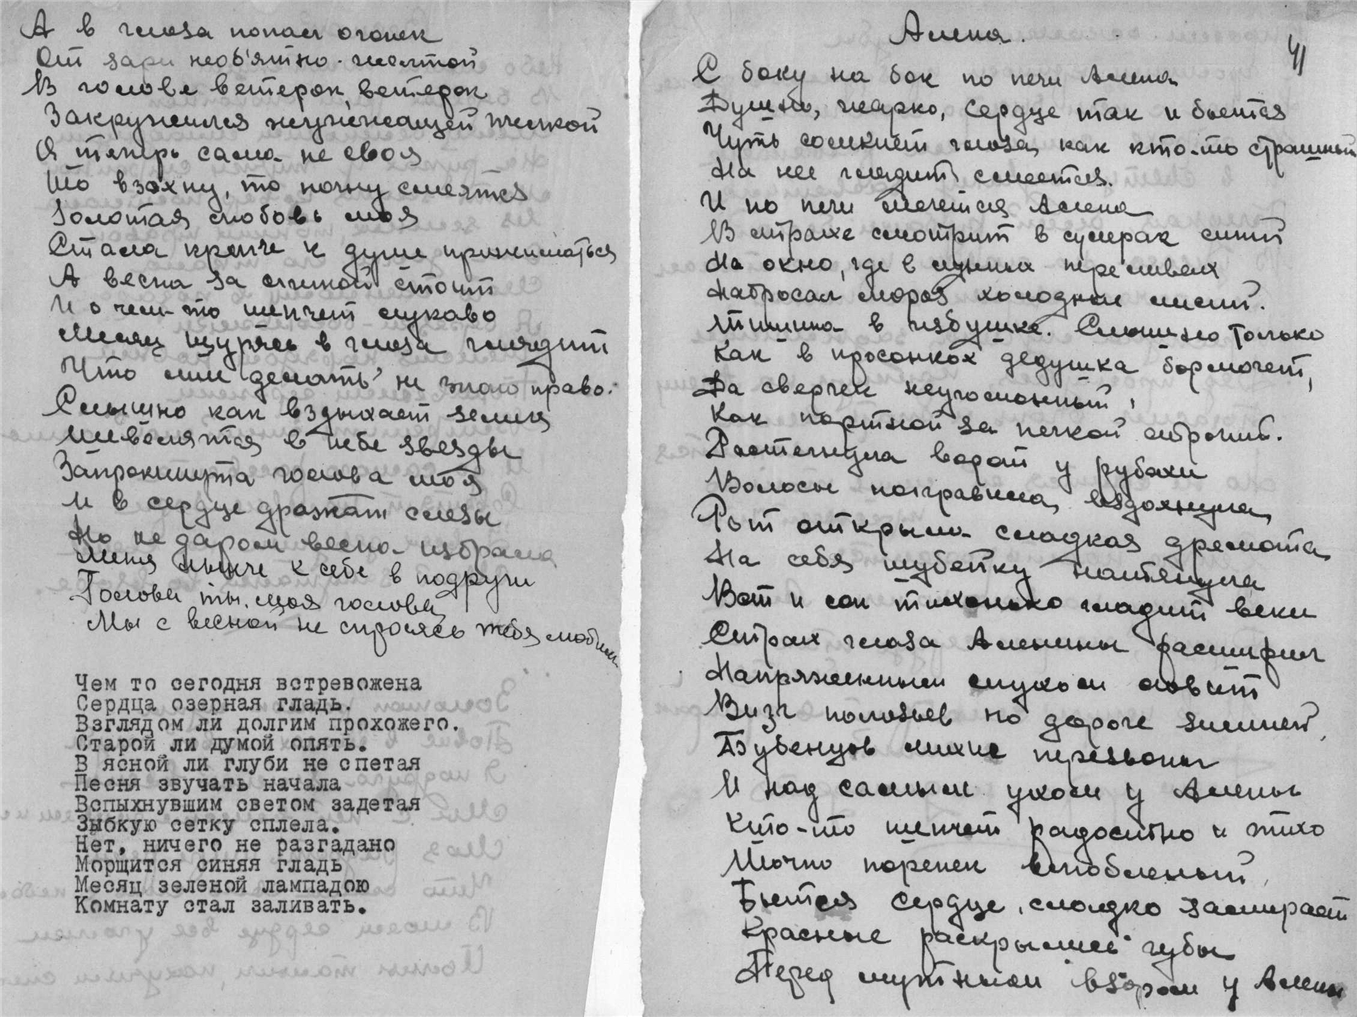 А в глаза попал огонек
От зари необ'ятно-желтой
В голове ветерок, ветерок
Закружился жужжащей пчелкой
Я теперь сама не своя
То взохну, то почну смеятся
Золотая любовь моя
Стала крепче к душе прижиматься
А весна за спиной стоит
И о чем-то шепчет лукаво
Месяц щурясь в глаза глядит
Что мне делать не знаю право.
Слышно как вздыхает земля
Шевелятся в небе звезды
Запрокинута голова моя
И в сердце дрожат слезы
Но не даром весна избрала
Меня нынче к себе в подруги
Голова ты, моя голова
Мы с весной не спросясь тебя
Чем то сегодня встревожена
Сердца озерная гладь.
Взглядом ли долгим прохожего.
Старой ли думой опять.
В ясной ли глуби не спетая
Песня звучать начала
Вспыхнувшим светом задетая
Зыбкую сетку сплела.
Нет, ничего не разгадано
Морщится синяя гладь
Месяц зеленой лампадою
Комнату стал заливать.
Алена.
41
С боку на бок по печи Алена
Душно, жарко, сердце так и бьется
Чуть сомкнет глаза, как кто-то страшный
На нее глядит, смеется.
И по печи мечется Алена
В страхе смотрит в сумрак синий
На окно, где в лунных переливах
Набросал мороз холодных линий.
Тишина в избушке. Слышно только
Как в просонках дедушка бормочет,
Да сверчек неугомонный,
Как портной за печкой строчит.
Расстегнула ворот у рубахи
Волосы поправила, вздохнула,
Рот открыла сладкая дремота
На себя шубейку натянула
Вот и сон тихонько гладит веки
Страх глаза Аленины расширил
Напряженным слухом ловит
Визг полозьев по дороге зимней,
Бубенцов лихие перезвоны
И над самым ухом у Алены
Кто-то шепчет радостно и тихо
Точно паренек влюбленный,
Бьется сердце, сладко замирает
Красные раскрылись губы
Перед мутным взором у Алены